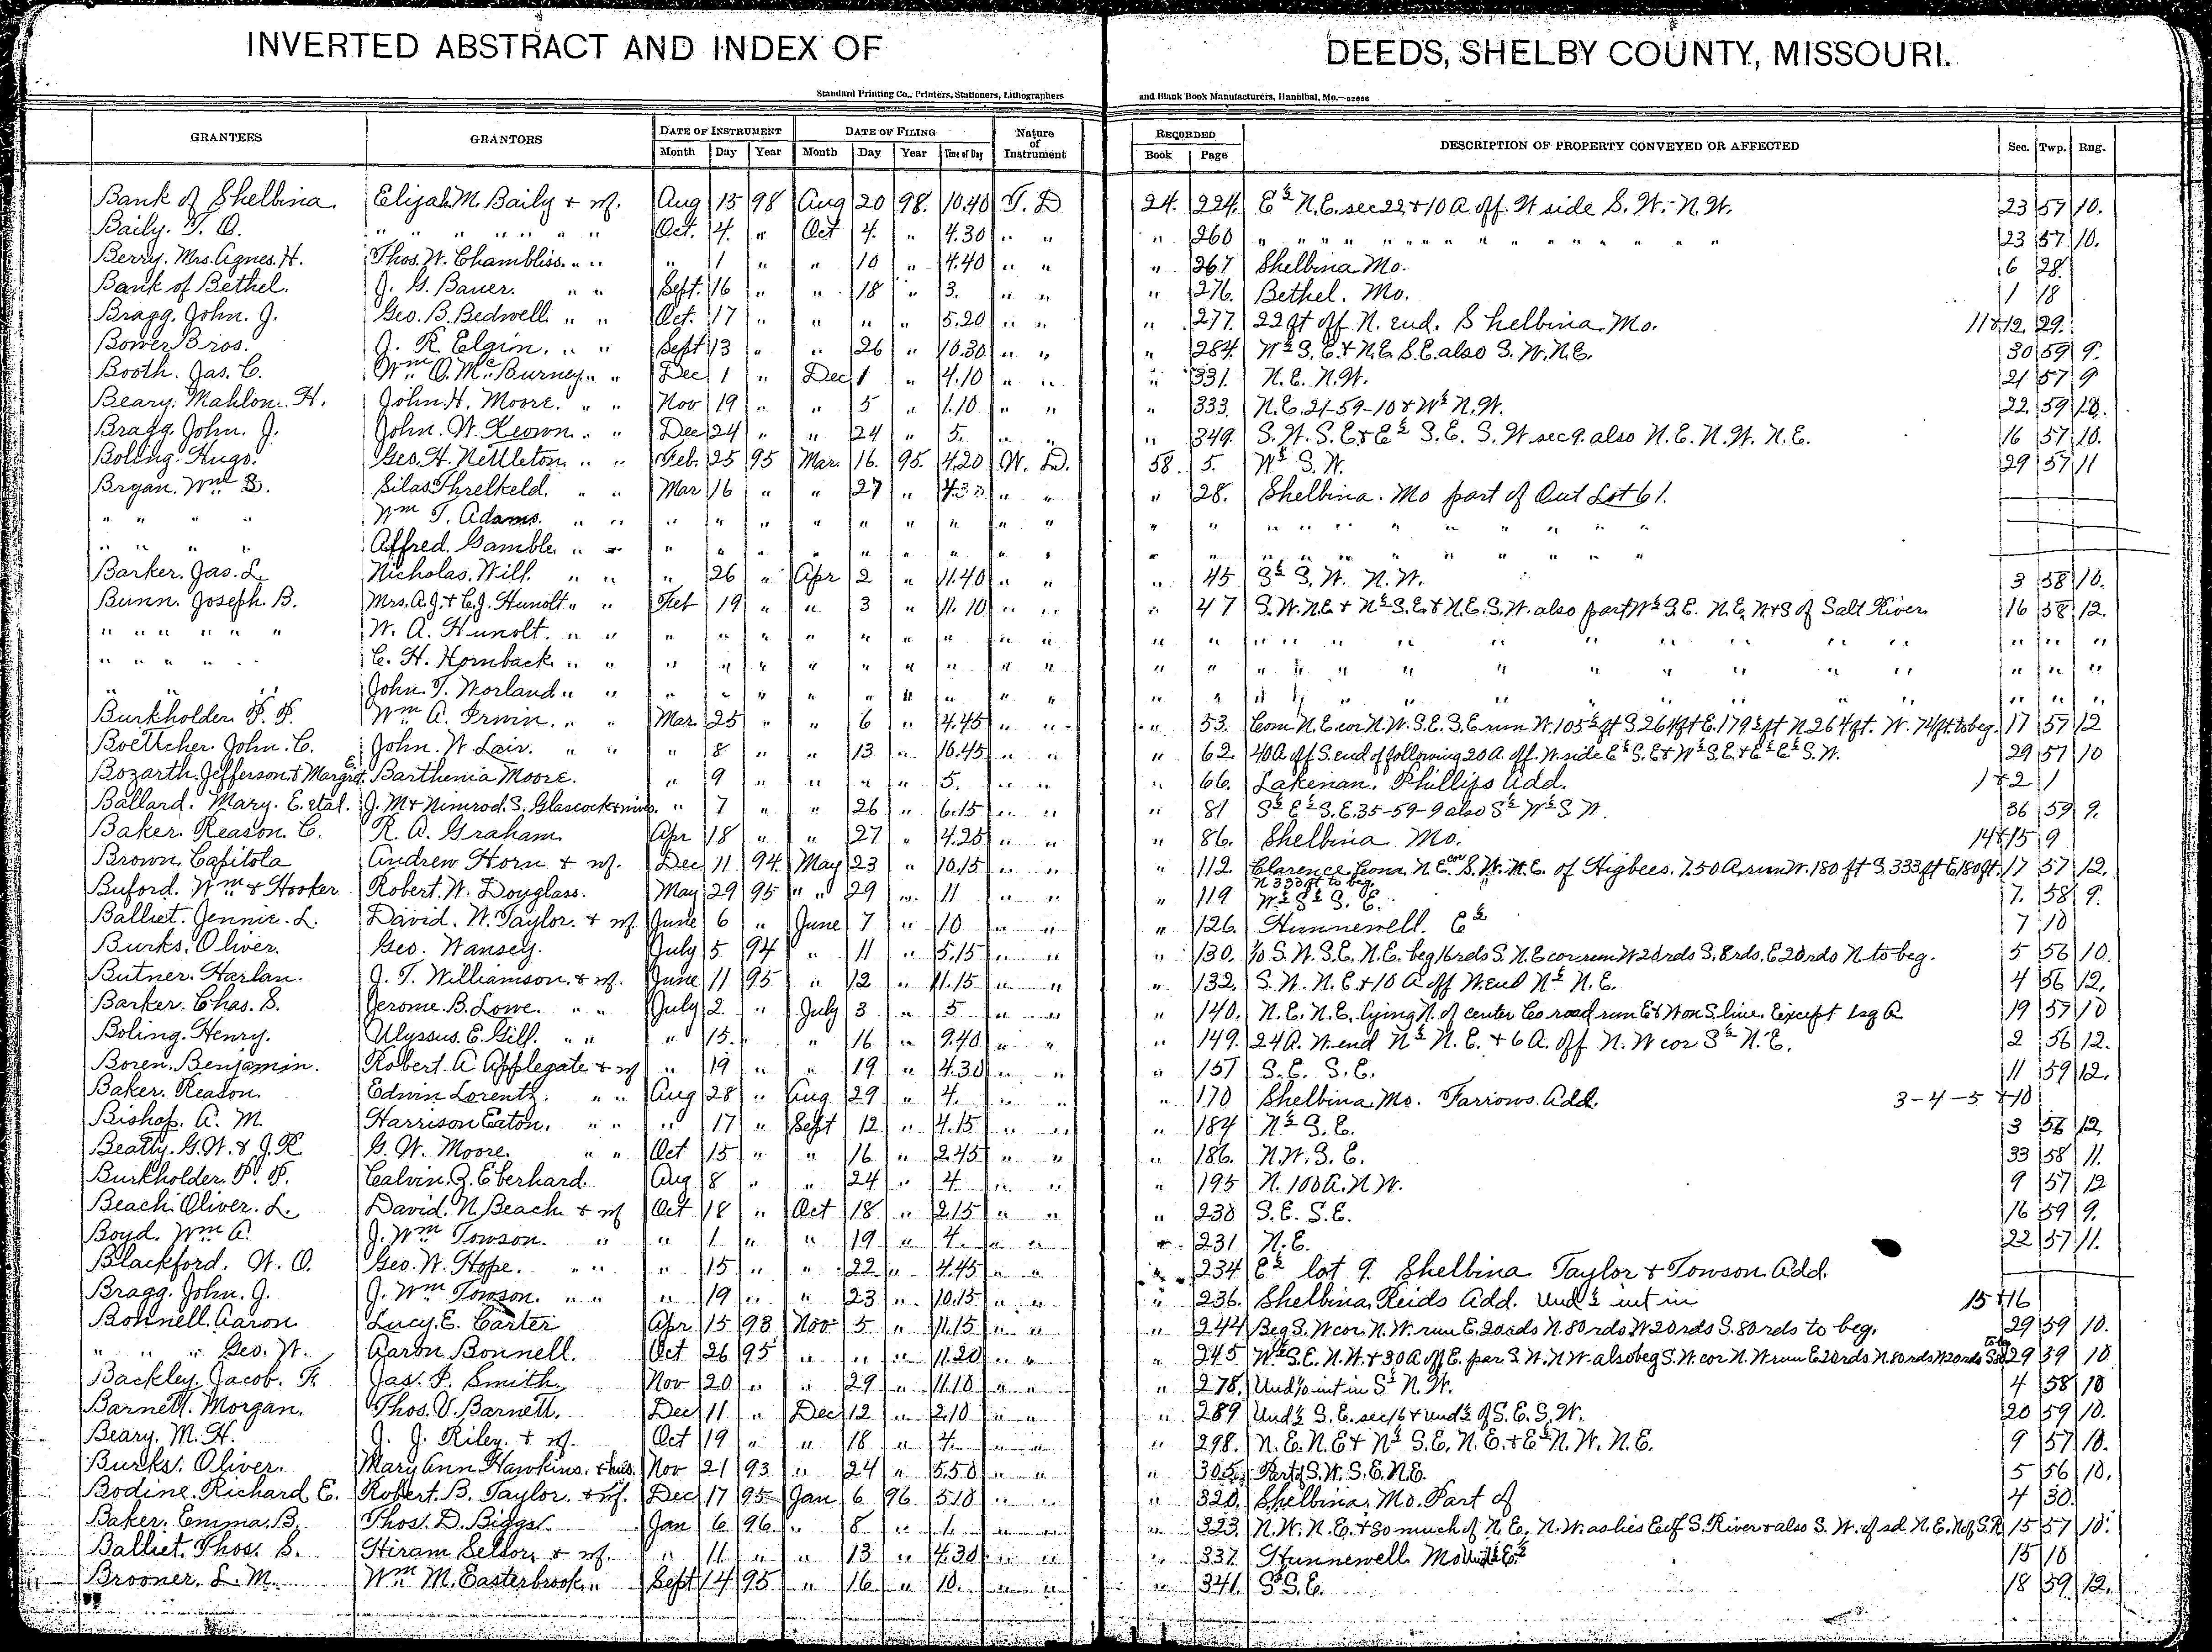 INVERTED ABSTRACT AND INDEX OF DEEDS, SHELBY COUNTY, MISSOURI.
Standard Printing Co., Printers, Stationers, Lithographers and Blank Book Manufacturers, Hannibal, Mo.—82658
GRANTEES GRANTORS DATE OF INSTRUMENT DATE OF FILING Nature of Instrument RECORDED DESCRIPTION OF PROPERTY CONVEYED OR AFFECTED Sec. Twp. Rng.
Month Day Year Month Day Year Time of Day Book Page
Bank of Shelbina. Elijah M. Baily + wf. Aug 15 98 Aug 20 98. 10.40 T. D 24. 224. E½ N.E. sec 22 + 10 A off. W side S. W. N. W. 23 57 10.
Baily. T. O. " " " " " " " Oct. 4. " Oct 4. " 4.30 " " " 260 " " " " " " " " " " " " " " 23 57 10.
Berry. Mrs. Agnes. H. Thos. W. Chambliss. " " " 1 " " 10 " 4.40 " " " 267 Shelbina. Mo. 6 28.
Bank of Bethel. J. G. Bauer. " " Sept. 16 " " 18 " 3. " " " 276. Bethel. Mo. 1 18
Bragg. John. J. Geo. B. Bedwell. " " Oct. 17 " " " " 5.20 " " " 277. 22 ft off N. end. Shelbina. Mo. 11+12. 29.
Bower Bros. J. R. Elgin. " " Sept 13 " " 26 " 10.30 " " " 284. W½ S. E. + N. E. S. E. also S. W. N. E. 30 59 9.
Booth. Jas. C. Wm O. McBurney. " " Dec 1 " Dec 1 " 4.10 " " " 331. N. E. N. W. 21 57 9
Beary. Mahlon. H. John. H. Moore. " " Nov 19 " " 5 " 1.10 " " " 333. N. E. 21-59-10 + W½ N. W. 22. 59 10.
Bragg. John. J. John. W. Keown. " " Dec 24 " " 24 " 5. " " " 349. S. W. S. E + E½ S. E. S. W sec 9. also N. E. N. W. N. E. 16 57 10.
Boling. Hugo. Geo. H. Nettleton. " " Feb. 25 95 Mar. 16. 95. 4.20 W. D. 58. 5. W½ S. W. 29 57 11
Bryan. Wm S. Silas Threlkeld. " " Mar 16 " " 27 " " " " 28. Shelbina. Mo part of Out Lot 61.
" " " " Wm T. Adams. " " " " " " " " " " " " " " " " " " " " " "
" " " " Alfred. Gamble. " " " " " " " " " " " " " " " " " " " " " "
Barker. Jas. L. Nicholas. Will. " " " 26 " Apr 2 " 11.40 " " " 45 S½ S. W. N. W. 3 58 10.
Bunn. Joseph. B. Mrs. A. J. + C. J. Hunolt " " Feb 19 " " 3 " 11.10 " " " 47 S. W. N. E + N½ S. E. + N. E. S. W. also part W½ S. E. N. E. N + S of Salt River 16 58 12.
" " " " " " W. A. Hunolt. " " " " " " " " " " " " " " " " " " " " " " " " " " "
" " " " " " C. H. Hornback. " " " " " " " " " " " " " " " " " " " " " " " " " " "
" " " John. T. Worland " " " " " " " " " " " " " " " " " " " " " " " " " " "
Burkholder. P. P. Wm A. Irwin. " " Mar. 25 " " 6 " 4.45 " " " 53. Com. N. E cor N. W. S. E. S. E run W. 105½ ft S 264 ft E. 179½ ft N. 264 ft. W. 74 ft. to beg. 17 57 12
Boettcher. John. C. John. W. Lair. " " " 8 " " 13 " 10.45 " " " 62. 40 A off S. end of following 20 A. off. W. side E½ S. E + W½ S. E. + E½ E½ S. W. 29 57 10
Bozarth. Jefferson + Margret. E. Barthenia Moore. " 9 " " " " 5. " " " 66. Lakenan. Phillips Add. 1+2 1
Ballard. Mary. E. etal. J. M + Nimrod. S. Glascock + wives. " 7 " " 26 " 6.15 " " " 81 S½ E½ S. E. 35-59-9 also S½ W½ S. W. 36 59 9.
Baker. Reason. C. R. A. Graham Apr 18 " " 27 " 4.25 " " " 86. Shelbina. Mo. 14+15 9
Brown. Capitola Andrew Horn + wf. Dec 11. 94. May 23 " 10.15 " " " 112 Clarence Com. N. E cor S. W. N. E. of Higbees. 7.50 A. run W. 180 ft S. 333 ft E 180 ft. N 333 ft to beg. 17 57 12.
Buford. Wm + Hooker Robert. W. Douglass. May 29 95 " " 29 " 11 " " " 119 W½ S½ S. E. 7. 58 9.
Balliet. Jennie. L. David. W. Taylor. + wf June 6 " June 7 " 10 " " " 126. Hunnewell. E½ 7 10
Burks. Oliver. Geo. Wansey. July 5 94 " 11 " 5.15 " " " 130. 1/0 S. W. S. E. N. E. beg 16 rds S. N. E cor run W 20 rds S. 8 rds, E 20 rds N to beg. 5 56 10.
Butner. Harlan. J. T. Williamson. + wf. June 11 95 " 12 " 11.15 " " " 132. S. W. N. E + 10 A off W. end N½ N. E. 4 56 12.
Barker. Chas. S. Jerome. B. Lowe. " " July 2. " July 3 " 5 " " " 140. N. E. N. E. lying N. of center Co. road run E + W on S. line. Except 1 sq A 19 57 10
Boling. Henry. Ulyssus. E. Gill. " " " 15. " " 16 " 9.40 " " " 149. 24 A. W. end N½ N. E. + 6 A. off N. W cor S½ N. E. 2 56 12.
Boren. Benjamin. Robert. A Applegate + wf " 19 " " 19 " 4.30 " " " 157 S. E. S. E. 11 59 12.
Baker. Reason. Edwin Lorentz. " " Aug 28 " Aug 29 " 4. " " " 170 Shelbina. Mo. Fariows. Add. 3-4-5 +10
Bishop. A. M. Harrison Eaton. " " " 17 " Sept 12 " 4.15 " " " 184 N½ S. E. 3 56 12
Beatty. G. W. + J. R. G. W. Moore. " " Oct 15 " " 16 " 2.45 " " " 186. N. W. S. E. 33 58 11.
Burkholder. P. P. Calvin. Z. Eberhard. Aug 8 " " 24 " 4 " " " 195 N. 100 A. N W. 9 57 12
Beach. Oliver. L. David. N. Beach + wf Oct 18 " Oct 18 " 2.15 " " " 230 S. E. S. E. 16 59 9.
Boyd. Wm A. J. Wm Towson. " " 1 " " 19 " 4. " " " 231 N. E. 22 57 11.
Blackford. W. O. Geo. W. Hope. " " " 15 " " 22 " 4.45 " " " 234 E½ lot 9. Shelbina Taylor + Towson. Add.
Bragg. John. J. J. Wm Towson. " " " 19 " " 23 " 10.15 " " " 236. Shelbina, Reids Add. Und ½ int in 15+16
Bonnell. Aaron Lucy. E. Carter Apr 15 93 Nov 5 " 11.15 " " " 244 Beg S. W cor. N. W. run E. 20 rds N. 80 rds W 20 rds S. 80 rds to beg. 29 59 10.
" " " Geo. W. Aaron Bonnell. Oct 26 95 " " " 11.20 " " " 245 W½ S. E. N. W. + 30 A off E. par S. W. N W. also beg S. W. cor N. W run E 20 rds N. 80 rds W 20 rds S 80 to beg 29 59 10
Backley. Jacob. F. Jas. P. Smith. Nov 20 " " 29 " 11.10 " " " 278. Und ⅙ int in S½ N. W. 4 58 10
Barnett. Morgan. Thos. V. Barnett. Dec 11 " Dec 12 " 2.10 " " " 289 Und ½ S. E. sec 16 + und ½ of S. E. S. W. 20 59 10.
Beary. M. H. J. J. Riley. + wf. Oct 19 " " 18 " 4. " " " 298. N. E. N. E + N½ S. E. N. E. + E½ N. W. N. E. 9 57 10.
Burks. Oliver. Mary Ann Hawkins. + hus. Nov 21 93 " 24 " 5.50 " " " 305. Part of S. W. S. E. N. E. 5 56 10.
Bodine. Richard E. Robert. B. Taylor. + wf. Dec 17 95 Jan 6 96 5.10 " " " 320. Shelbina. Mo. Part of 4 30.
Baker. Emma. B. Thos. D. Biggs. Jan 6 96 " 8 " 1. " " " 323. N. W. N. E. + so much of N. E. N. W. as lies E of S. River + also S. W. of sd N. E. N of S. R 15 57 10.
Balliet. Thos. S. Hiram Selsor. + wf. " 11 " " 13 " 4.30 " " " 337 Hunnewell. Mo E½ 15 10
Brooner. L. M. Wm M. Easterbrook. " Sept 14 95 " 16 " 10. " " " 341. S½ S. E. 18 59 12.